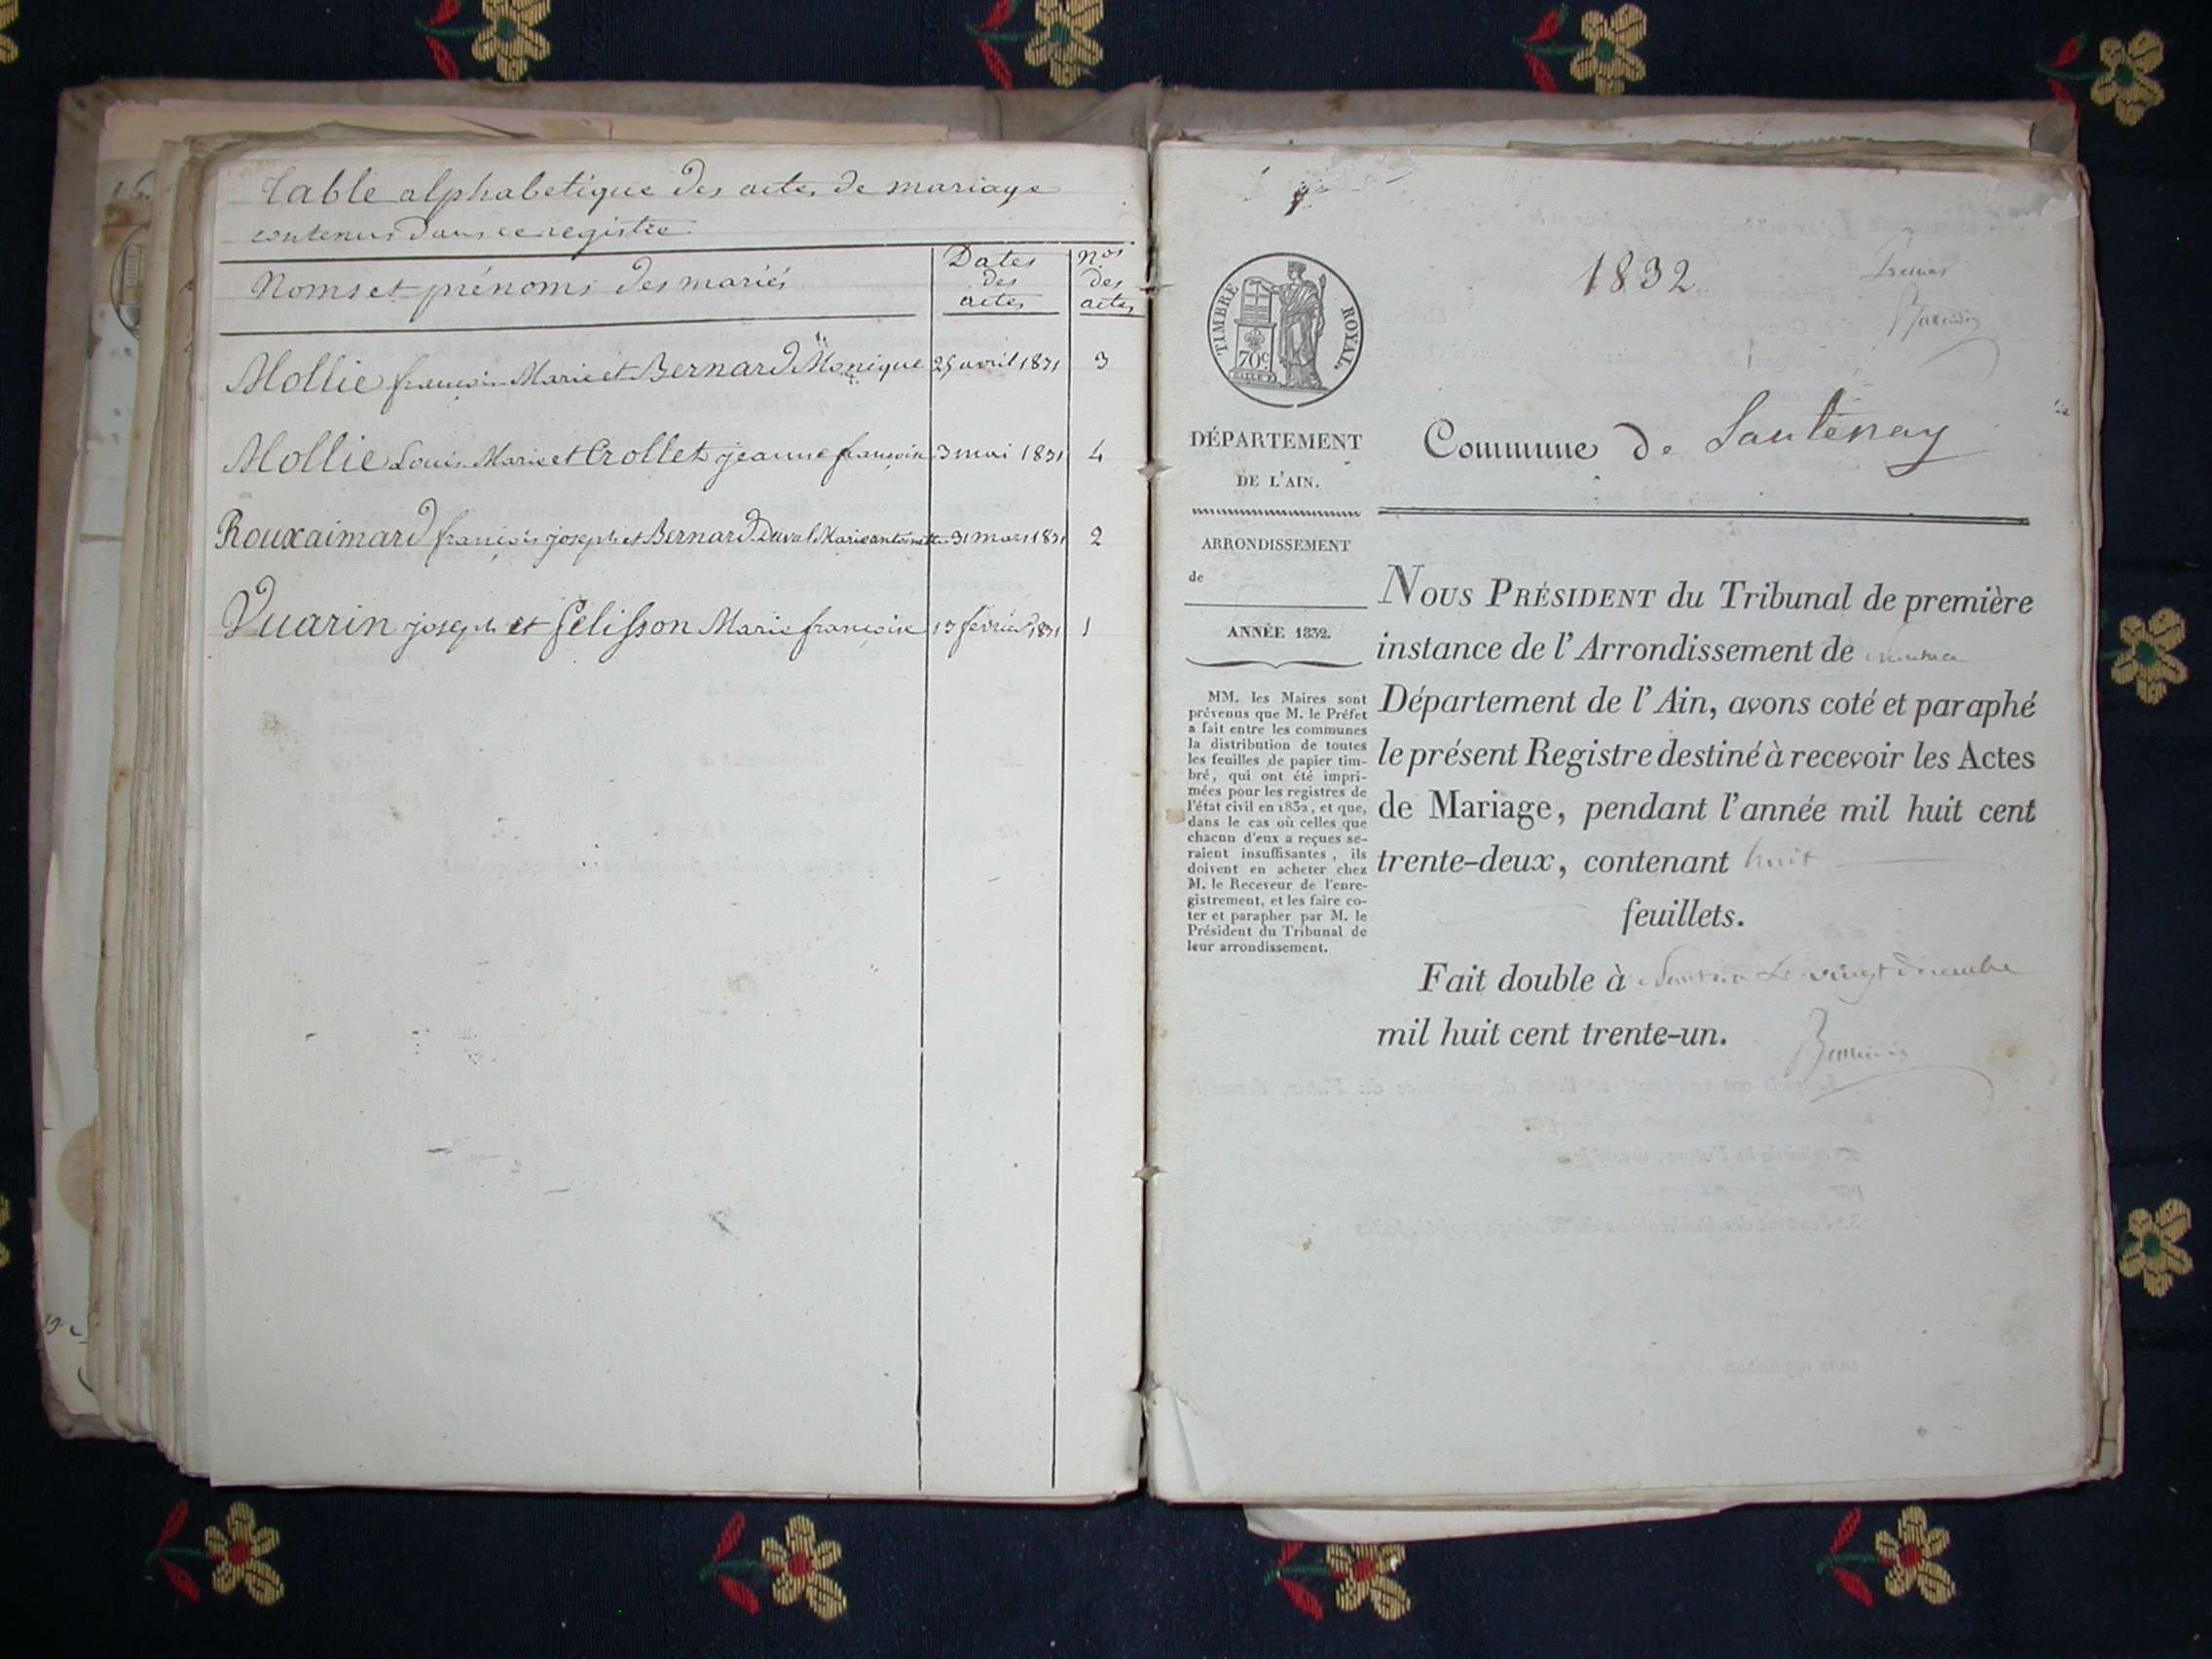 Table alphabetique des actes de mariage
contenus dans ce registre
Noms et prénoms des mariés
Dates des actes
nos des actes
Mollie françois Marie et Bernard Monique 25 avril 1831 3
Mollie Louis Marie et Crollet jeanne françoise 3 mai 1831 4
Rouxaimard françois joseph et Bernard Duval Marie antoinette 31 mars 1831 2
Vuarin joseph et Pelisson Marie françoise 13 février 1831 1
1832
Premier
TIMBRE ROYAL.
70c
DÉPARTEMENT
DE L'AIN.
Commune de Lantenay
ARRONDISSEMENT
de
ANNÉE 1832.
MM. les Maires sont
prévenus que M. le Préfet
a fait entre les communes
la distribution de toutes
les feuilles de papier tim-
bré, qui ont été impri-
mées pour les registres de
l'état civil en 1832, et que,
dans le cas où celles que
chacun d'eux a reçues se-
raient insuffisantes, ils
doivent en acheter chez
M. le Receveur de l'enre-
gistrement, et les faire co-
ter et parapher par M. le
Président du Tribunal de
leur arrondissement.
NOUS PRÉSIDENT du Tribunal de première
instance de l'Arrondissement de Nantua
Département de l'Ain, avons coté et paraphé
le présent Registre destiné à recevoir les Actes
de Mariage, pendant l'année mil huit cent
trente-deux, contenant huit
feuillets.
Fait double à Nantua Le vingt décembre
mil huit cent trente-un.